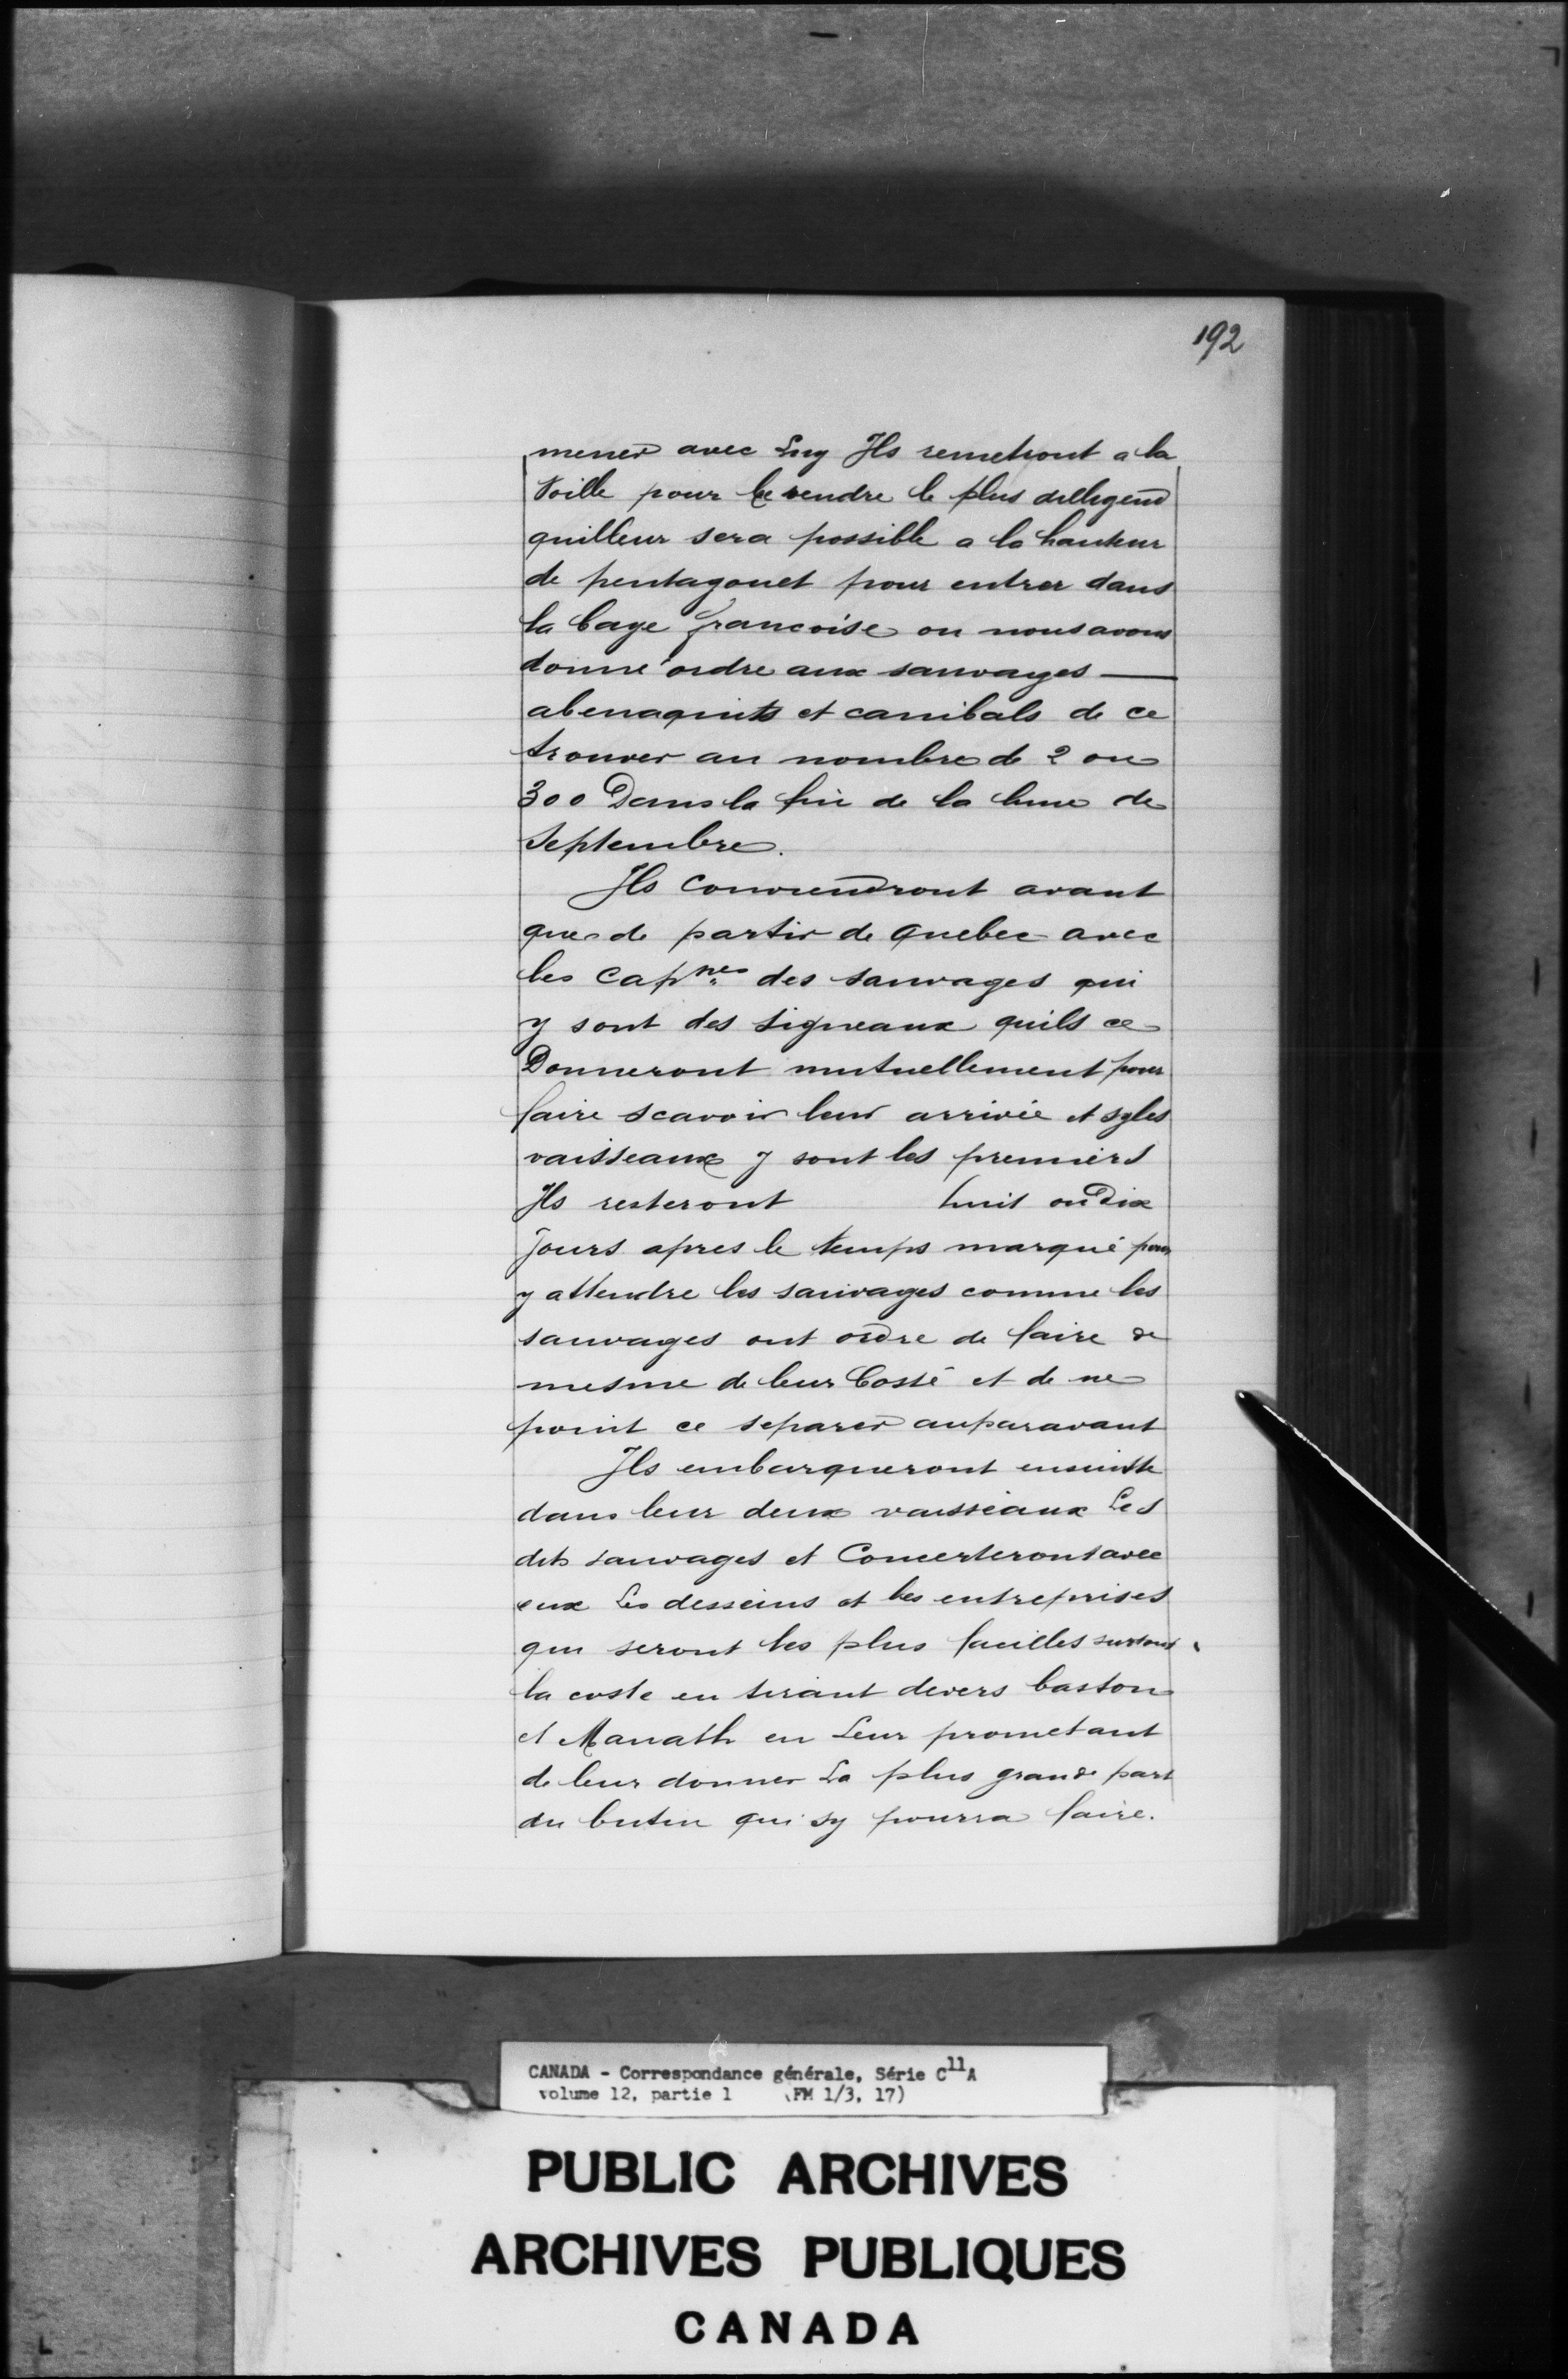 192
mener avec Luy Ils remetront a la
voille pour ce rendre le plus dilligend
quilleur sera possible a la hauteur
de pentagouet pour entrer dans
la baye francoise ou nous avons
donné ordre aux sauvages —
abenaquits et canibals de ce
trouver au nombre de 2 ou
300 Dans la fin de la lune de
Septembre.
Ils conviendront avant
que de partir de quebec avec
les Capnes des sauvages qui
y sont des signeaux quils ce
Donneront mutuellement pour
faire scavoir leur arrivée et syles
vaisseaux y sont les premiers
Ils resteront huit ou Dix
jours apres le temps marqué pour
y attendre les sauvages comme les
sauvages ont ordre de faire de
mesme de leur Costé et de ne
point ce separer auparavant
Ils embarqueront ensuitte
dans leur deux vaisseaux Les
dits sauvages et Concerteront avec
eux Les desseins et les entreprises
qui seront les plus facilles surtout
la coste en tirant devers baston
et Manath en Leur prometant
de leur donner La plus grande part
du butin qui sy pourra faire.
CANADA - Correspondance générale, Série C11A
volume 12, partie 1 (FM 1/3, 17)
PUBLIC ARCHIVES
ARCHIVES PUBLIQUES
CANADA